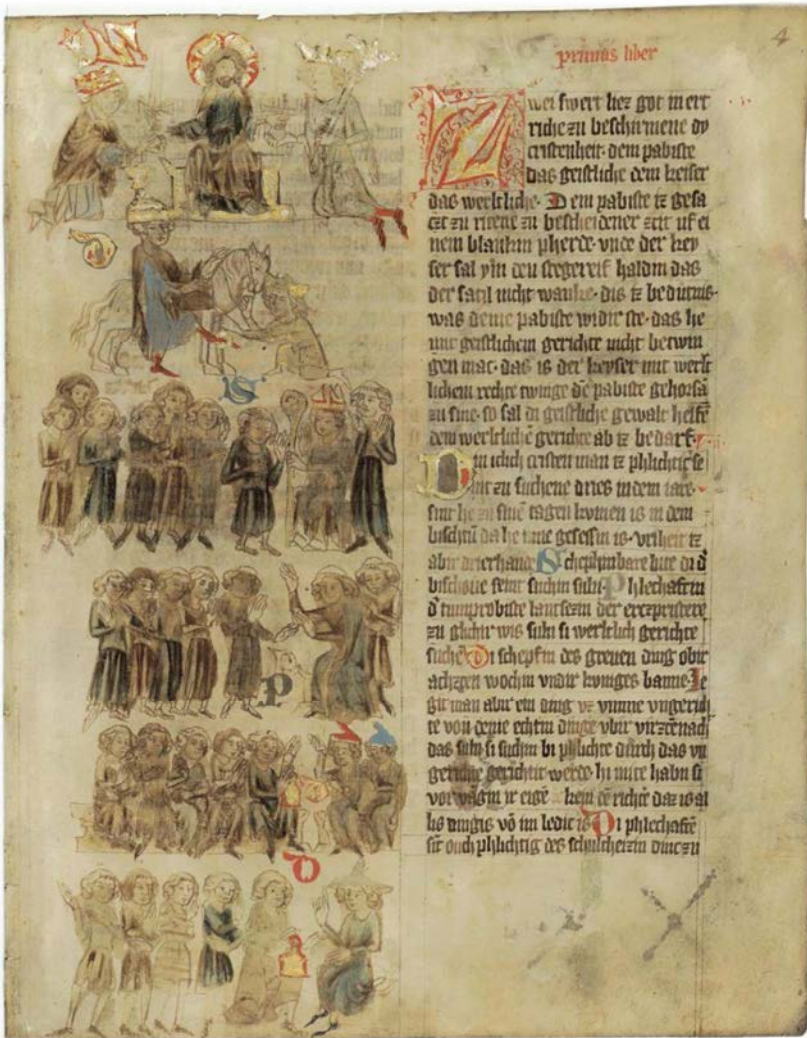 4
primus liber
Zwei swert liez got in ert
riche zu beschirmene dy
cristenheit. dem pabiste
das geistliche dem keiser
das werltliche. Dem pabiste iz gesa
czt zu ritene zu bescheidener zcit uf ei
nem blankin pherde. vnde der key
ser sal ym den stegereif haldin das
der satil nicht wanke. dis iz bedutnis.
was deme pabiste widir ste. das he
mit geistlichem gerichte nicht betwin
gen mac. das is der keyser mit werlt
lichem rechte twinge dē pabiste gehorsā
zu sine. so sal di geistliche gewalt helfē
dem werltlichē gerichte ab iz bedarf.
iclich cristen man iz phlichtic se
nt zu suchene dries in dem iare.
sint he zu sinē tagen komen is in dem
bischtū da he inne gesessin is. vriheit iz
abir drierhand Schephinbare lute di d'
bischoue seint suchin suln. Phlechaftin
d' tumprobiste lantsezin der erczpristere
zu glichir wis suln si werltlich gerichte
suchē. Di schepfin des greuen ding obir
achzen wochin vndir koniges banne. Le
git man abir ein ding vz vmme vngerich
te von deme echtin dinge vbir virzēnach
das suln si suchin bi phlichte durch das vn
gerichte gerichtit werde. hi mite habn si
vor ir eigē kein richte daz is al
lis dingis vō im ledic is Di phlechaftē
sīt ouch phlichtig des schultheizin dinc zu
S
P
D